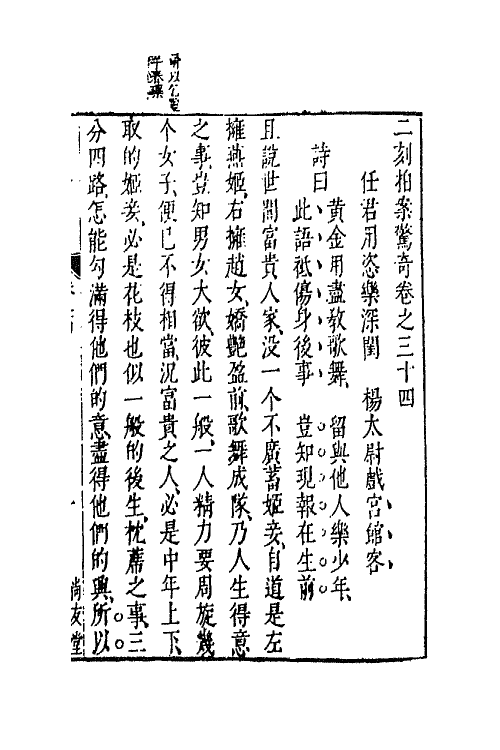 二刻拍案驚奇卷之三十四
任君用恣樂深閨　楊太尉戲宮館客
詩曰
黃金用盡教歌舞　留與他人樂少年
此語祇傷身後事　豈知現報在生前
且說世間富貴人家、没一个不廣蓄姬妾、自道是左
擁燕姬、右擁趙女、嬌艷盈前、歌舞成隊、乃人生得意
之事、豈知男女大欲、彼此一般、一人精力要周旋幾
个女子、便已不得相當、況富貴之人、必是中年上下、
取的姬妾、必是花枝也似一般的後生、枕蓆之事、三
分四路、怎能勾滿得他們的意、盡得他們的興、所以
尚友堂